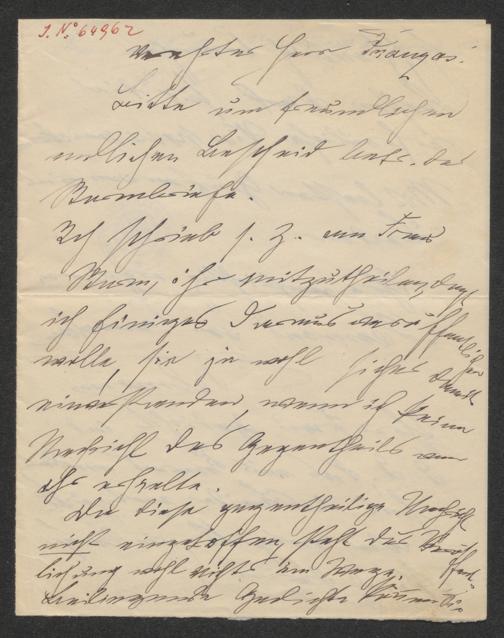 J. N° 64962
Verehrter Herr Franzos!
Bitte um freundlichen
endlichen Bescheid betr. der
Stormbriefe.
Ich schrieb s. Z. an Frau
Storm, ihr mitzutheilen, daß
ich Einiges daraus veröffentlichen
wolle, sie ja wohl sicher damit
einverstanden, wenn ich keine
Nachricht des Gegentheils von
ihr erhielte.
Da diese gegentheilige Nachricht
nicht eingetroffen, steht der Veröffent-
lichung wohl nichts im Wege.
Beiliegende Gedichte können Sie